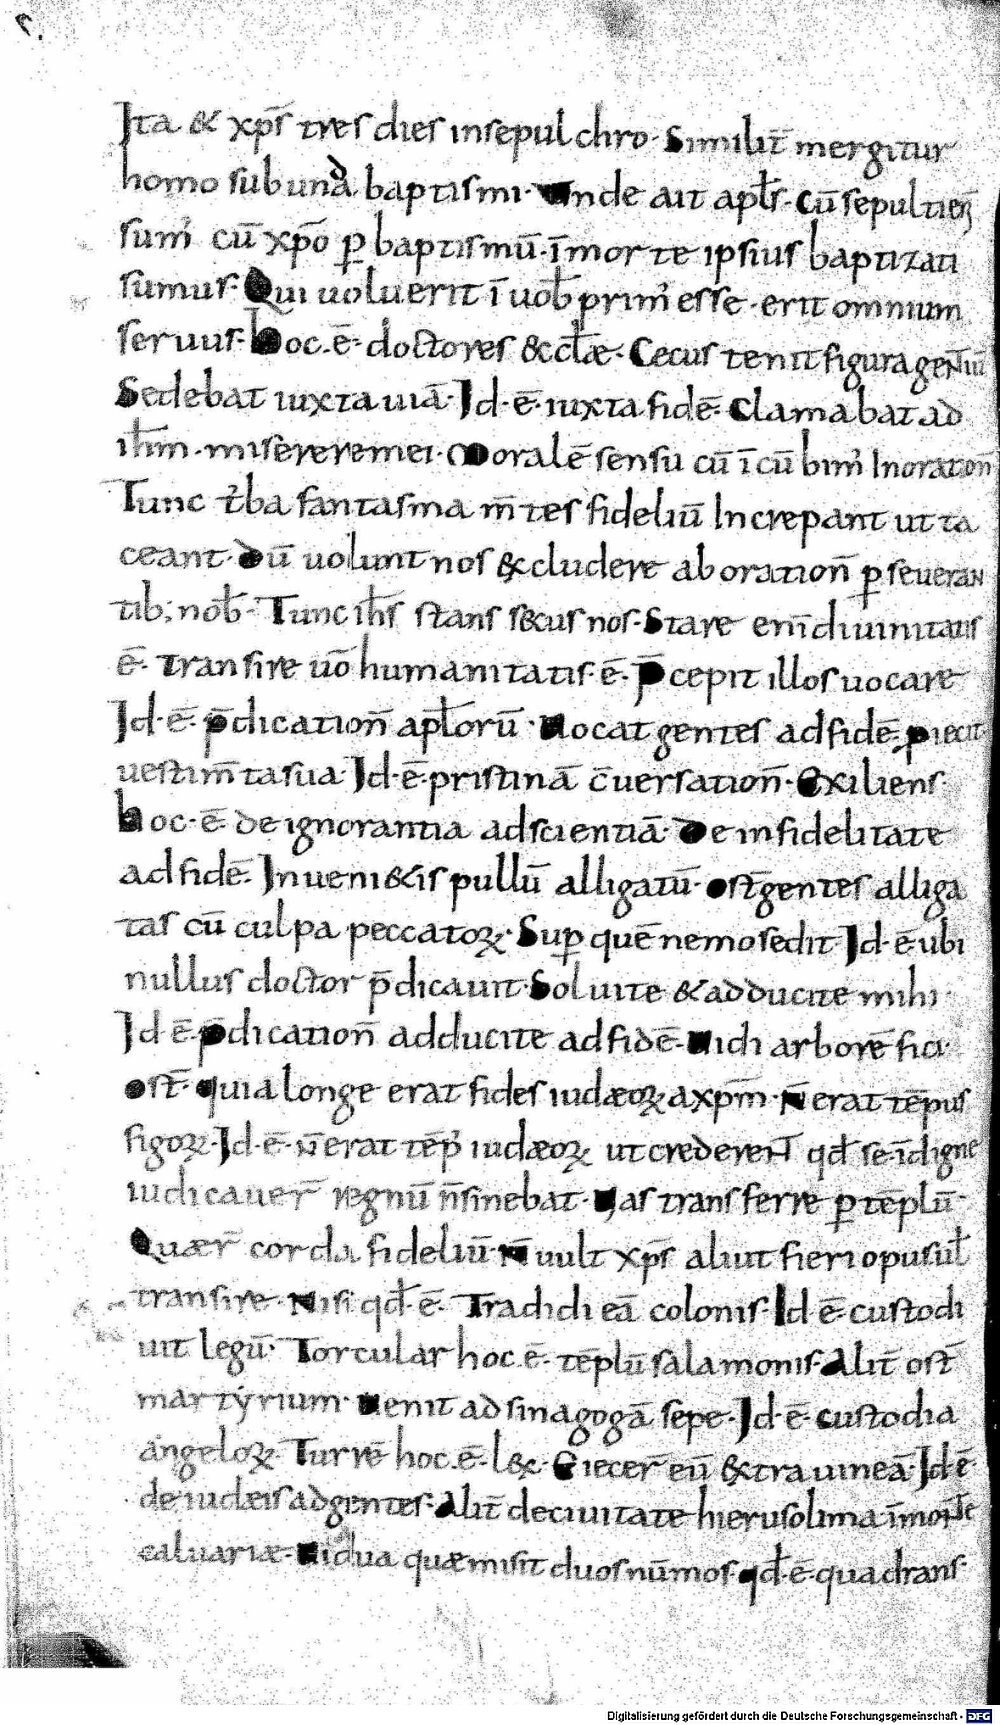 Ita & xp̄s tres dies insepulchro· Similit̄ mergitur
homo sub unda baptismi· Unde ait apl̄s· Cū sepulti eni̅
sum᾽ cū xp̄o p̲ baptismū· ī morte ipsius baptizati
sumus· Qui uoluerit ī uob̄ prim᾽ esse· erit omnium
seruus· hoc·ē· doctores & cl̄æ· Cecus tenit figura gentiū
Sedebat iuxta uiā· Id·ē· iuxta fidē· Clamabat ad
ih̄m· misereremei· Moralē sensu cū īcūbim᾽ In oration̄
Tunc t᾽ba fantasma m̄tes fideliū Increpant ut ta
ceant· Dū uolunt nos &cludere ab oration̄ p̲seueran
tib; nob̄· Tunc ih̄s stans s&cus nos· Stare enī diuinitatis
ē· Transire uō humanitatis·ē· P̄cepit illos uocare
Id·ē· p̄dication̄ apl̄orū· Uocat gentes ad fidē· proiecit
uestim̄ta sua· Id·ē· pristinā c̄uersation̄· Exiliens·
hoc·ē· de ignorantia ad scientiā· De infidelitate
ad fidē· Inueni&is pullū alligatū· ost̄ gentes alliga
tas cū culpa peccatoꝝ· Sup̲ quē nemo sedit Id·ē· ubi
nullus doctor p̄dicauit· Soluite & adducite mihi·
Id·ē· p̄dication̄ adducite ad fidē· Uidi arborē fici·
ost̄· quia longe erat fides iudæoꝝ a xp̄m· N̄ erat tēpus
figoꝝ· Id·ē· n̄ erat tēp᾽ iudæoꝝ ut crederent qd̄ se īdigne
iudicauer̄ regnū n̄ sinebat· Uas transferre p̲ tēplū·
Quær̄ corda fideliū· N̄ uult xp̄s aliut fieri opusul̄
transire· Nisi qd̄·ē· Tradidi eā colonis· Id·ē· custodi
uit legū· Torcular hoc·ē· tēplū salamonis· Alit̄ ost̄
martyrium· Uenit ad sinagogā sepe· Id·ē· custodia
angeloꝝ· Turrē hoc·ē· l&x· Eiecer̄ eū &tra uineā· Id·ē·
de iudæis ad gentes· Alit̄ de ciuitate hierusolima ī monte
caluariæ· Uidua quæ misit duos nūmos· qd̄·ē· quadrans·
Digitalisierung gefördert durch die Deutsche Forschungsgemeinschaft - DFG